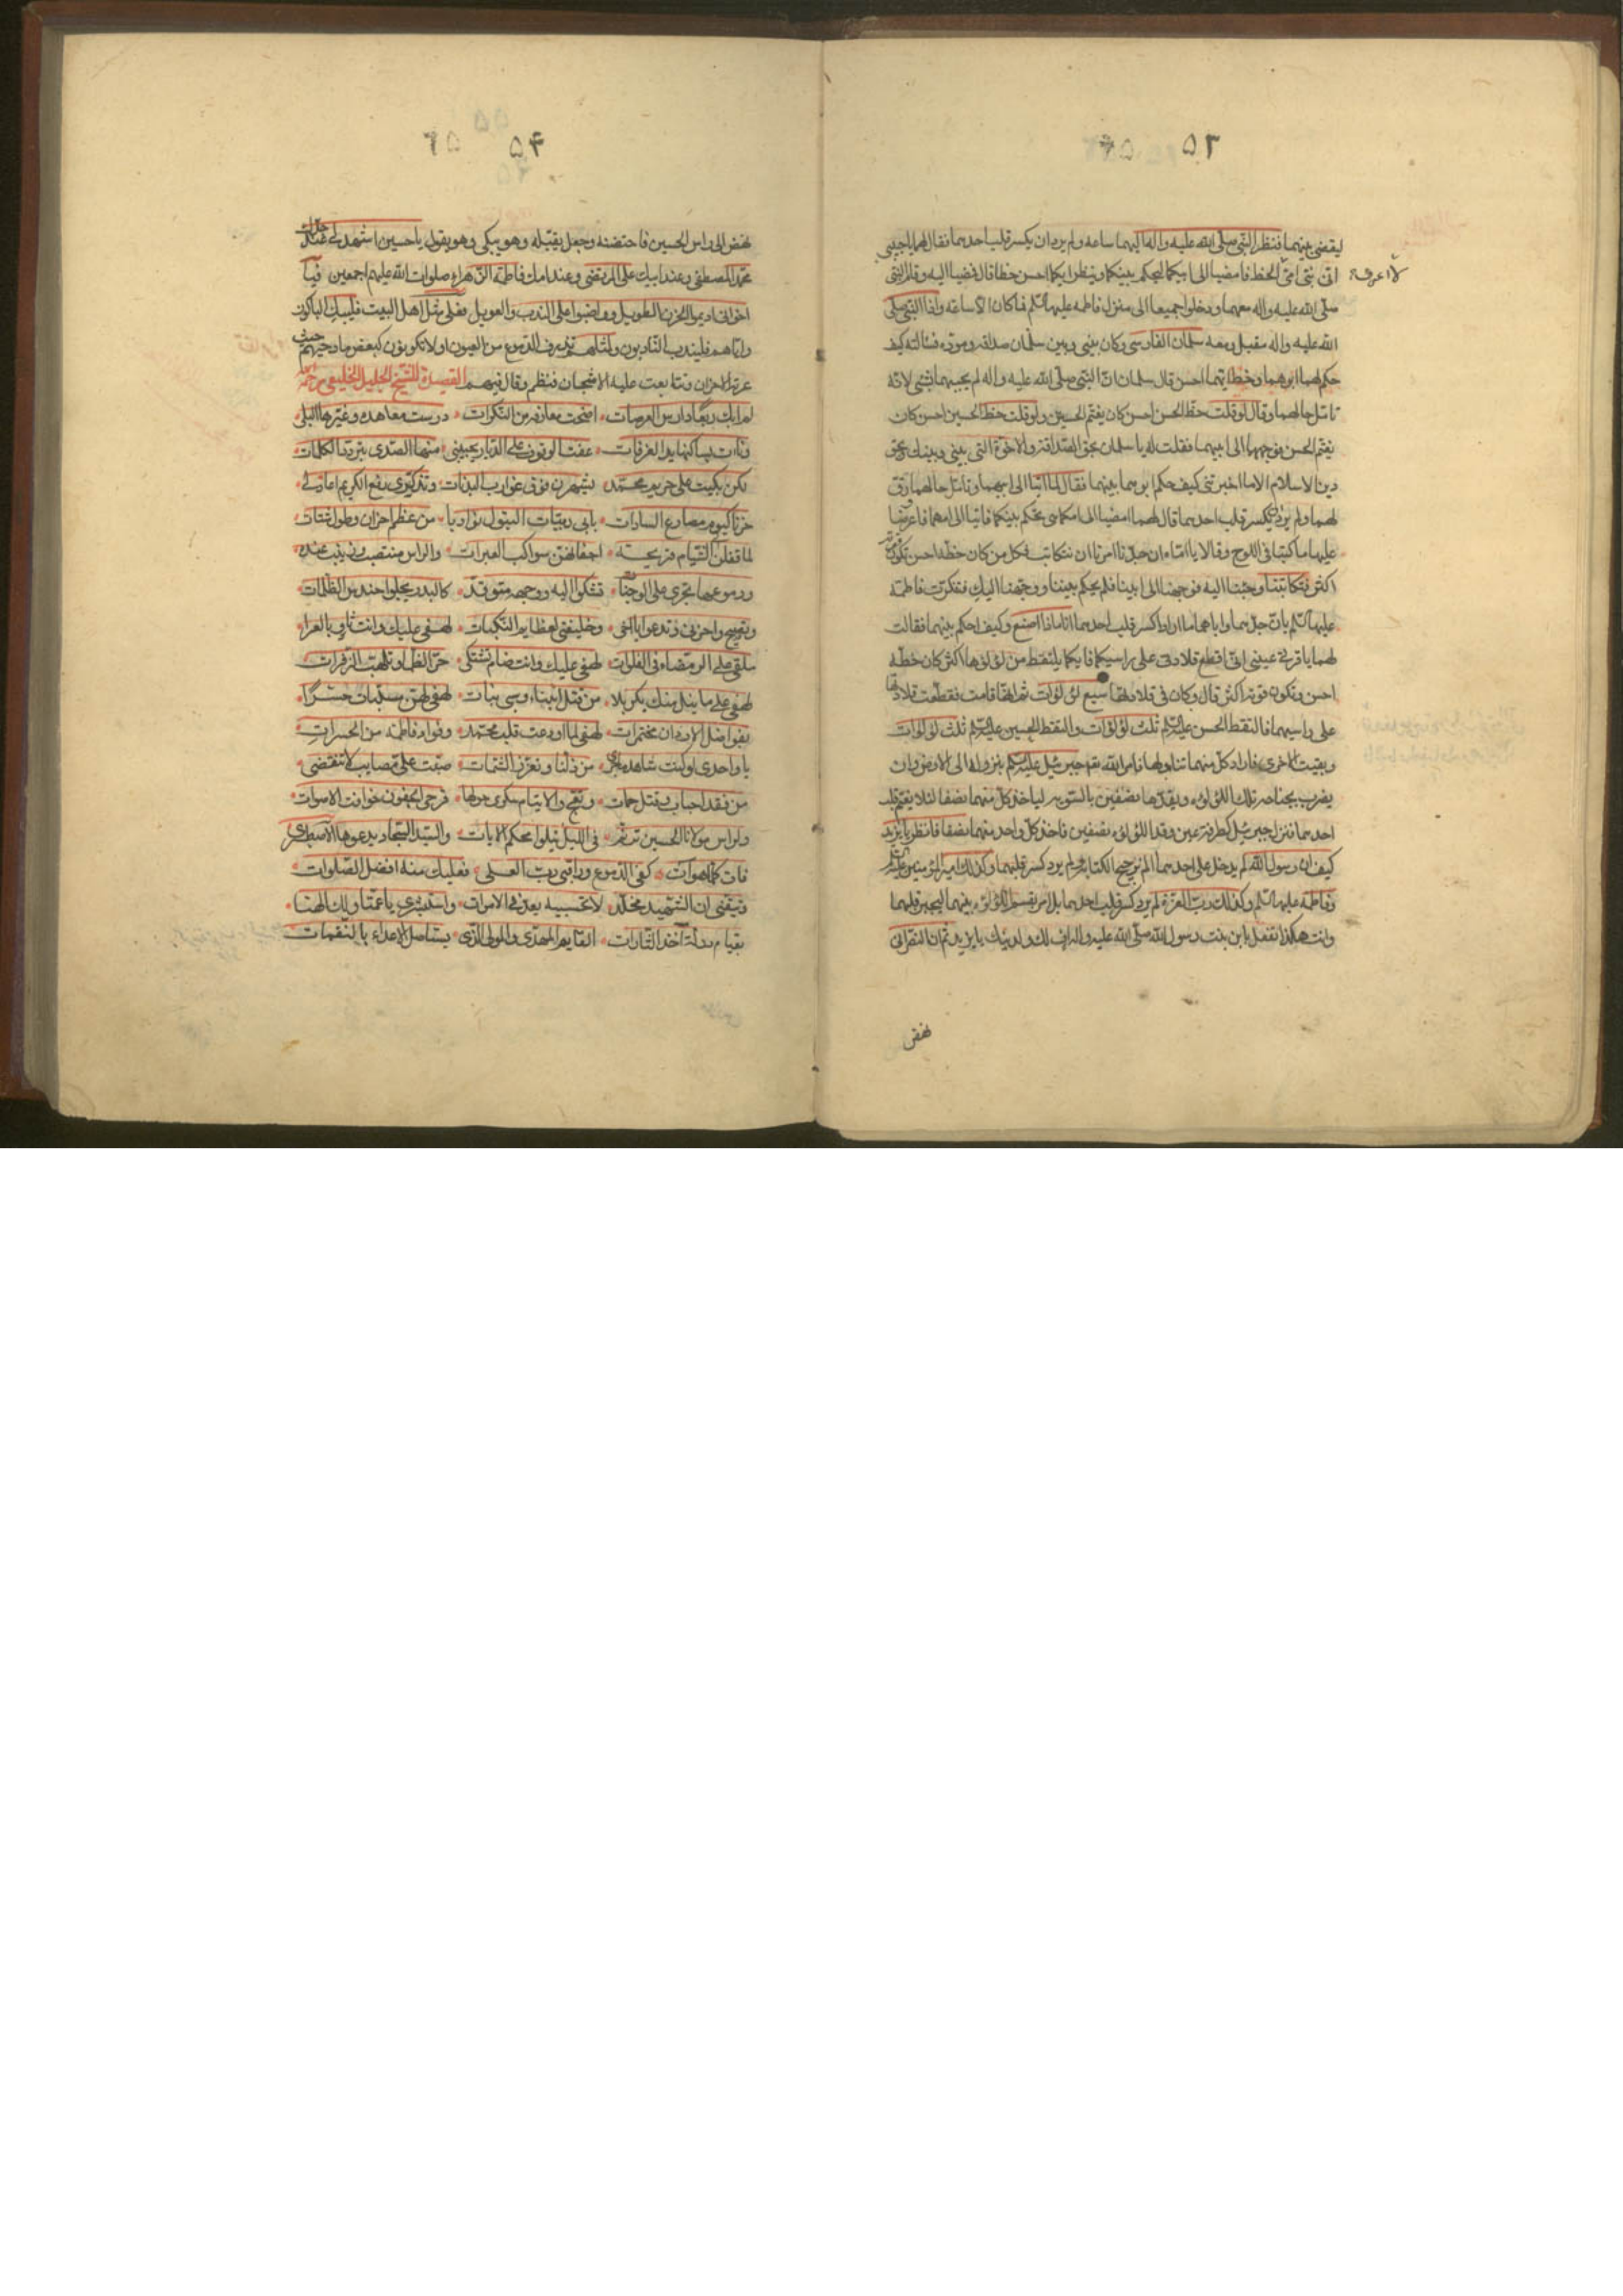 ٥٣
ليقضي بينهما فنظر النبي صلى الله عليه واله اليهما ساعة ولم يرد ان يكسر قلب احدهما فقال لهما يا حبيبي
اني نبي امي لا اعرف الخط فامضيا الى ابيكما ليحكم بينكما وينظر ايكما احسن خطا قال فمضيا اليه وقام النبي
صلى الله عليه واله معهما ودخلوا جميعا الى منزل فاطمة عليها السلم فما كان الا ساعة واذا النبي صلى
الله عليه واله مقبل ومعه سلمان الفارسي وكان بيني وبين سلمان صداقة ومودة فسالته كيف
حكم لهما ابوهما وخط ايهما احسن قال سلمان ان النبي صلى الله عليه واله لم يجبهما بشيء لانه
تامل حالهما وقال لو قلت خط الحسن احسن كان يغتم الحسين ولو قلت خط الحسين احسن كان
يغتم الحسن فوجههما الى ابيهما فقلت له يا سلمان بحق الصداقة والاخوة التي بيني وبينك وبحق
دين الاسلام الا ما اخبرتني كيف حكم ابوهما بينهما فقال لما اتيا الى ابيهما وتامل حالهما رق
لهما ولم يرد ان يكسر قلب احدهما قال لهما امضيا الى امكما فهي تحكم بينكما فاتيا الى امهما فاعرضا
عليها ما كتبا في اللوح وقالا يا اماه ان جدنا امرنا ان نتكاتب فكل من كان خطه احسن تكون قوته
اكثر فتكاتبنا وجئنا اليه فوجهنا الى ابينا فلم يحكم بيننا ووجهنا اليك فتفكرت فاطمة
عليها السلم بان جدهما واباهما ما ارادا كسر قلب احدهما انا ماذا اصنع وكيف احكم بينهما فقالت
لهما يا قرتي عيني اني اقطع قلادتي على راسيكما فايكما يلتقط من لؤلؤها اكثر كان خطه
احسن وتكون قوته اكثر قال وكان في قلادتها سبع لؤلؤات ثم انها قامت فقطعت قلادتها
على راسيهما فالتقط الحسن عليه السلم ثلث لؤلؤات والتقط الحسين عليه السلم ثلث لؤلؤات
وبقيت الاخرى فاراد كل منهما تناولها فامر الله تع جبرئيل عليه السلم بنزوله الى الارض وان
يضرب بجناحه تلك اللؤلؤة ويقدها نصفين بالسوية لياخذ كل منهما نصفا لئلا يغتم قلب
احدهما فنزل جبرئيل كطرفة عين وقد اللؤلؤة نصفين فاخذ كل واحد منهما نصفا فانظر يا يزيد
كيف ان رسول الله لم يدخل على احدهما الم ترجيح الكتابة ولم يرد كسر قلبهما وكذلك امير المؤمنين عليه السلم
وفاطمة عليها السلم وكذلك رب العزة لم يرد كسر قلب احدهما بل امر بقسم اللؤلؤة بينهما لجبر قلبهما
وانت هكذا تفعل بابن بنت رسول الله صلى الله عليه واله اف لك ولدينك يا يزيد ثم ان النصراني
نهض
٥٤
نهض الى راس الحسين فاحتضنه وجعل يقبله وهو يبكي وهو يقول يا حسين اشهد لي عند جدك
محمد المصطفى وعند ابيك علي المرتضى وعند امك فاطمة الزهراء صلوات الله عليهم اجمعين فيا
اخواني اديموا الحزن الطويل وواظبوا على الندب والعويل فعلى مثل اهل البيت فليبك الباكون
واياهم فليندب النادبون ولمثلهم تذرف الدموع من العيون اولا تكونون كبعض مادحيهم حيث
عرته الاحزان وتتابعت عليه الاشجان فنظم وقال فيهم القصيدة للشيخ الجليل الخليعي رحمه الله
لم ابك ربعا دارس العرصات اضحت معارفه من النكرات درست معاهده وغيرها البلى
ونات بساكنها يد الغرفات عفت الوقوف على الديار يجيبني منها الصدى بتردد الكلمات
لكن بكيت على حريم محمد يشهرن فوق غوارب البدنات وتذكري رفع الكريم امامي
حزنا كيوم مصارع السادات بابي ربيبات البتول نواديا من عظم احزان وطول شتات
لما قفلن من الشيام قريحة اجفانهن سواكب العبرات والراس منتصب وزينب عنده
ودموعها تجري على الوجنات تشكو اليه ووجهه متوقد كالبدر يجلو حندس الظلمات
وتصيح واحزني وتدعو يا اخي وخليفتي لعظايم النكبات لهفي عليك وانت ثاو بالعرا
ملقى على الرمضاء في الفلوات لهفي عليك وانت ضام تشتكي حر الظما وتلهب الزفرات
لهفي على ما ينل منك بكربلا من قتل ابناء وسبي بنات لهفي لهن مسلبات حسرا
بفواضل الاردان مختمرات لهفي لما اودعت قلب محمد وفؤاد فاطمة من الحسرات
يا واحدي لو كنت شاهد ما جرى من ذلنا وتعزز الشمات صبت علي مصايب لا تنقضي
من فقد احباب وقتل حمات وتضج والايتام سكرى حولها قرحى الجفون خوافت الاصوات
ولراس مولانا الحسين ترنم في الليل يتلوا محكم الايات والسيد السجاد يدعوها الا اصطبري
فات كلما هو ات كفي الدموع وراقبي رب العلى فعليك منه افضل الصلوات
وتيقني ان الشهيد مخلد لا تحسبيه يعد في الاموات واستبشري يا عمتا ولك الهنا
بقيام دولة اخذ الثارات القايم المهدي والمولى الذي يستاصل الاعداء بالنقمات